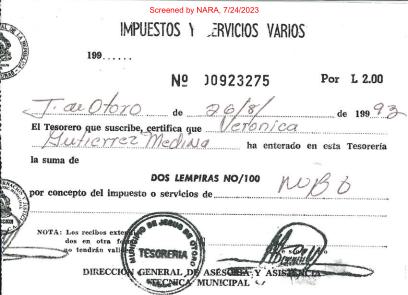 Screened by NARA, 7/24/2023
IMPUESTOS Y SERVICIOS VARIOS
199......
Nº 00923275 Por L 2.00
J. de Otoro de 26/8/ de 1993
El Tesorero que suscribe, certifica que Veronica
Gutierrez Medina ha enterado en esta Tesorería
la suma de
DOS LEMPIRAS NO/100
por concepto del impuesto o servicios de
NOTA: Los recibos
dos en otra
no tendrán
MUNICIPAL DE JESUS DE OTORO
TESORERIA
DIRECCION GENERAL DE ASESORIA Y ASISTENCIA
TECNICA MUNICIPAL